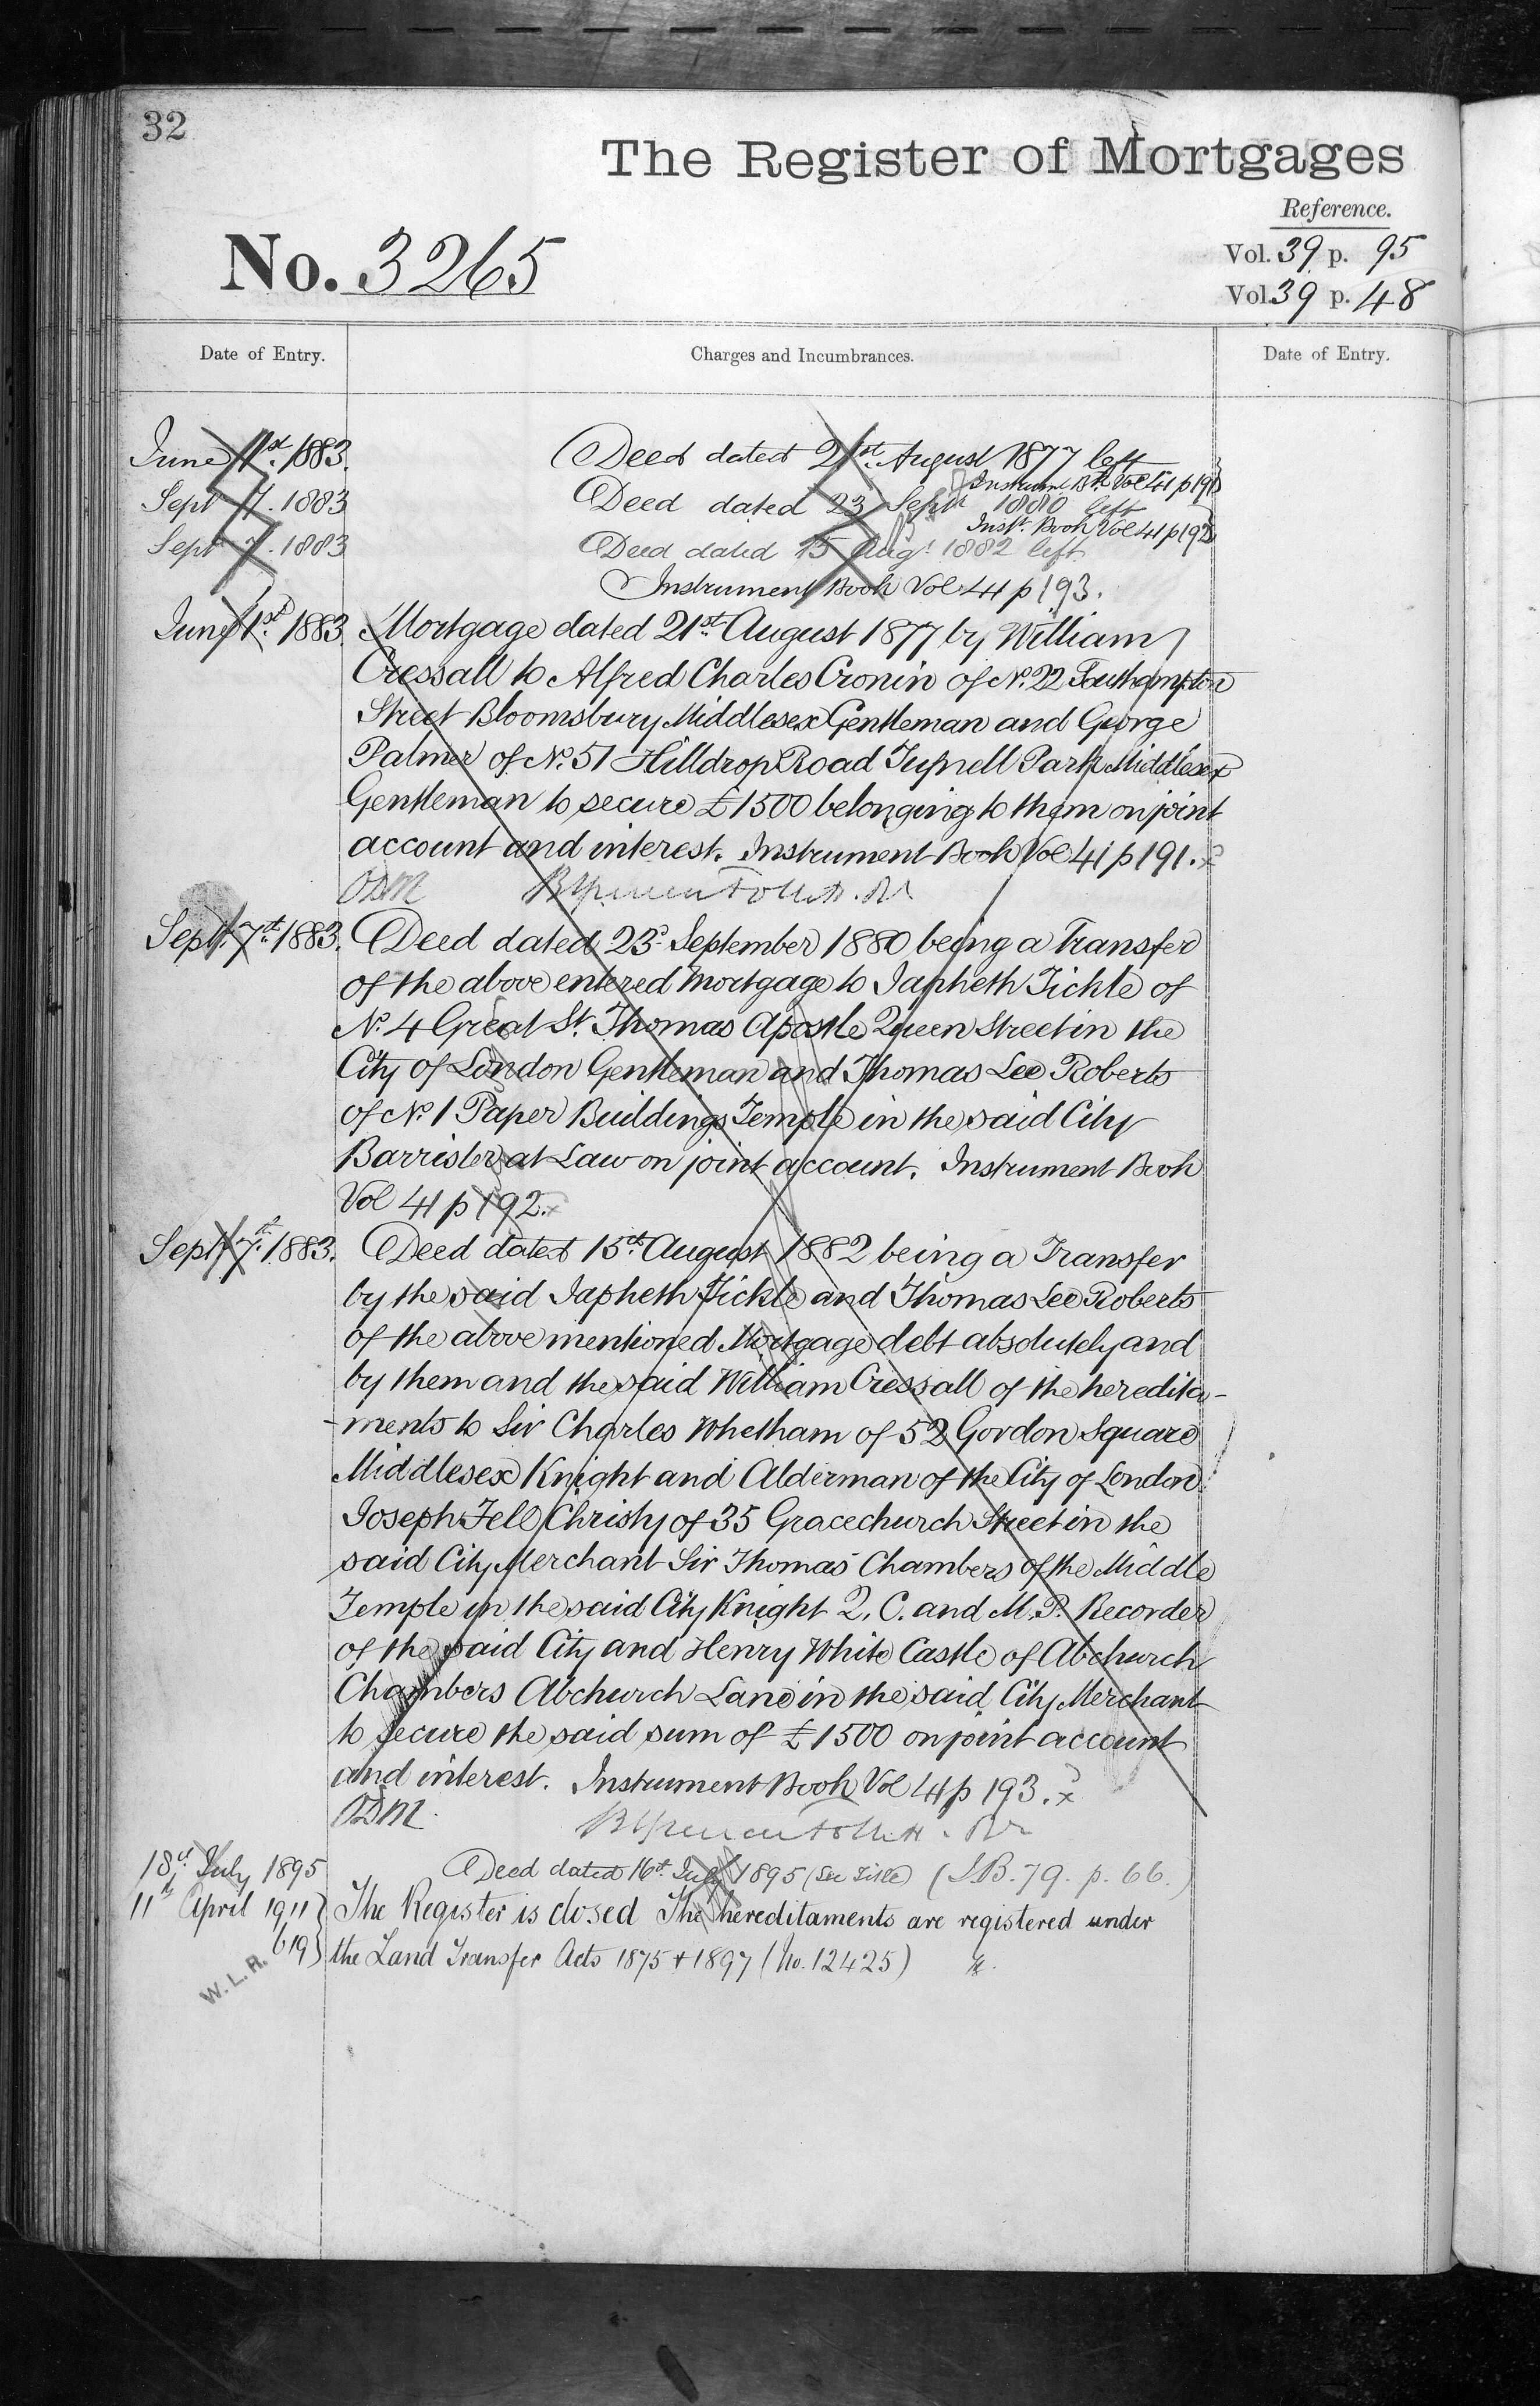 32
The Register of Mortgages
Reference.
No. 3265
Vol. 39 p. 95
Vol. 39 p. 48
Date of Entry.
Charges and Incumbrances.
Date of Entry.
June 1st. 1883. Deed dated 21st. August 1877 left
Instrum. Bk Vol 41 p 191
Sept 7. 1883 Deed dated 23 Sept 1880 left
Inst. Book Vol 41 p 192
Sept 7. 1883 Deed dated 15 Augt 1882 left
Instrument Book Vol 41 p 193.
June 1st. 1883. Mortgage dated 21st. August 1877 by William
Cressall to Alfred Charles Cronin of No. 22 Southampton
Street Bloomsbury Middlesex Gentleman and George
Palmer of No. 51 Hilldrop Road Tufnell Park Middlesex
Gentleman to secure £1500 belonging to them on joint
account and interest. Instrument Book Vol 41 p 191.
ODM
Septr. 7th. 1883. Deed dated 23d September 1880 being a Transfer
of the above entered Mortgage to Japheth Tickle of
No. 4 Great St. Thomas Apostle Queen Street in the
City of London Gentleman and Thomas Lee Roberts
of No. 1 Paper Buildings Temple in the said City
Barrister at Law on joint account. Instrument Book
Vol 41 p 192.
Septr. 7th. 1883. Deed dated 15th August 1882 being a Transfer
by the said Japheth Tickle and Thomas Lee Roberts
of the above mentioned Mortgage debt absolutely and
by them and the said William Cressall of the heredita-
-ments to Sir Charles Whetham of 52 Gordon Square
Middlesex Knight and Alderman of the City of London
Joseph Fell Christy of 35 Gracechurch Street in the
said City Merchant Sir Thomas Chambers of the Middle
Temple in the said City Knight Q. C. and M. P. Recorder
of the said City and Henry White Castle of Abchurch
Chambers Abchurch Lane in the said City Merchant
to secure the said sum of £1500 on joint account
and interest. Instrument Book Vol 41 p 193.
ODM.
18th July 1895 Deed dated 16th July 1895 (See Title) (I.B. 79. p. 66.)
11th April 1911 The Register is closed The hereditaments are registered under
619 the Land Transfer Acts 1875 & 1897 (No. 12425)
W.L.R.